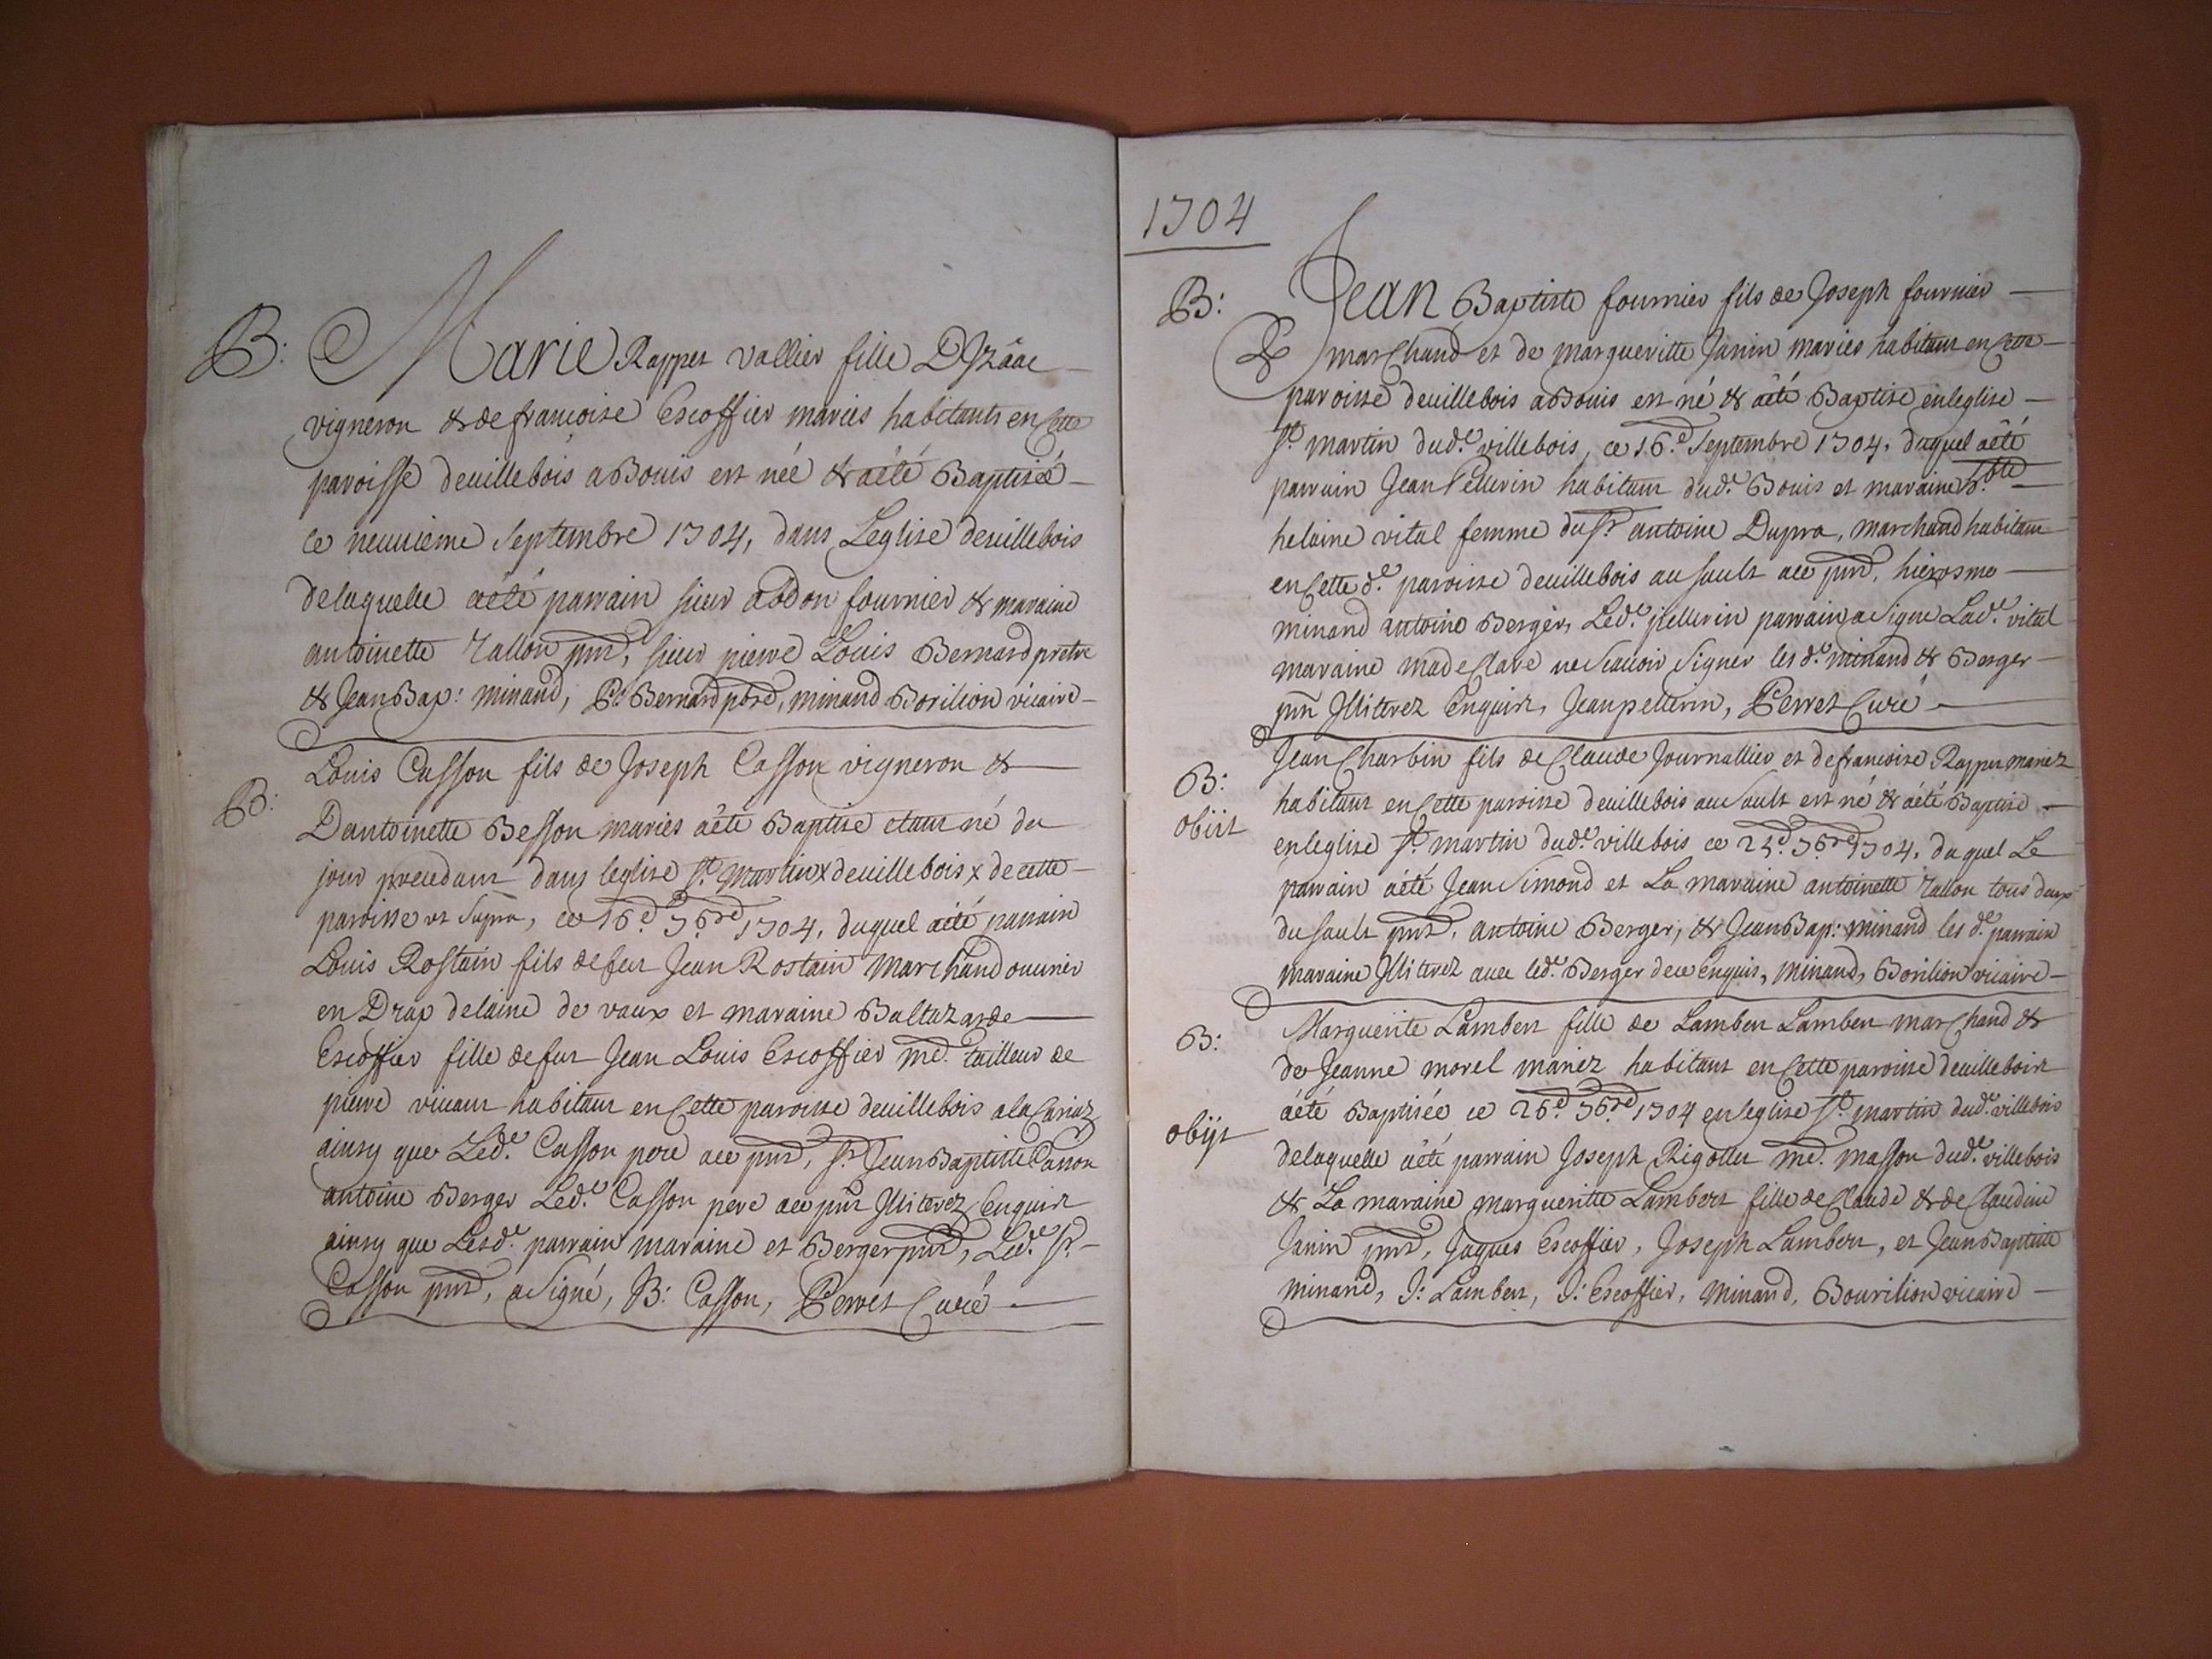 B: Marie Rappet vallier fille D Izâac
vigneron & de francoise Escoffier mariés habitants en Cette
paroisse deuillebois a Bouis est née & aété Baptisée
ce neuuieme Septembre 1704, dans Leglise deuillebois
delaquelle aété parrain sieur abdon fournier & maraine
antoinette rallon pnt, sieur pierre Louis Bernard pretre
& Jean Bap: minand, P Bernard pbre, minand Borilion vicaire
B: Louis Casson fils de Joseph Casson vigneron &
Dantoinette Besson mariés aété Baptisé etant né du
jour precedant dans leglise St. Martin x deuillebois x de cette
paroisse ut supra, ce 16e. 7bre 1704, duquel aété parrain
Louis Rostain fils defeu Jean Rostain Marchand ouurier
en Drap delaine de vaux et maraine Baltazarde
Escoffier fille defeu Jean Louis Escoffier me. tailleur de
pierre viuant habitant en Cette paroisse deuillebois ala Cariaz
ainsy que Led.e Casson pere ace pnt, Sr. Jean Baptiste Casson
antoine Berger Led.e Casson pere ace pnt Illiterez Enquis
ainsy que Lesd.e parrain maraine et Berger pnt, Led.e Sr.
Casson pnt, a Signé, B: Casson, Perret Curé
1704
B: Jean Baptiste fournier fils de Joseph fournier
marChand et de marguerite Janin mariés habitant en Cette
paroisse deuillebois a Bouis est né & aété Baptisé enleglise
St. martin dud.e villebois, ce 16.e Septembre 1704. duquel aété
parrain Jean Pellerin habitant dud.e Bouis et maraine
helaine vital femme du Sr. antoine Dupra, marchand habitant
en Cette d.e paroisse deuillebois au sault ace pnt, hierosme
minand antoine Berger, Led.e pellerin parrain a Signé Lad.e vital
maraine ma deClaré ne Scauoir Signer les d.e minand & Berger
pnt Illiterez Enquis, Jean pellerin, Perret Curé
B: Jean Charbin fils de Claude Journallier et de francoise Rappet mariez
obiit habitant en Cette paroisse deuillebois au Sault est né & aété Baptisé
enleglise St. martin dud.e villebois ce 25.e 7bre 1704. duquel Le
parrain aété Jean Simond et La maraine antoinette rallon tous deux
du sault pnt, antoine Berger, & Jean Bap: minand les d.e parrain
maraine Illiterez auec led.e Berger dece Enquis, Minand, Borilion vicaire
B: Marguerite Lambert fille de Lambert Lambert marChand &
de Jeanne morel mariez habitant en Cette paroisse deuillebois
aété Baptisée ce 26.e 7bre 1704 enleglise St. martin dud.e villebois
obijt delaquelle aété parrain Joseph Rigollet me. masson dud.e villebois
& La maraine marguerite Lambert fille de Claude & de Claudine
Janin pnt, Jaques Escoffier, Joseph Lambert, et Jean Baptiste
minand, J: Lambert, J: Escoffier, Minand, Bourilion vicaire